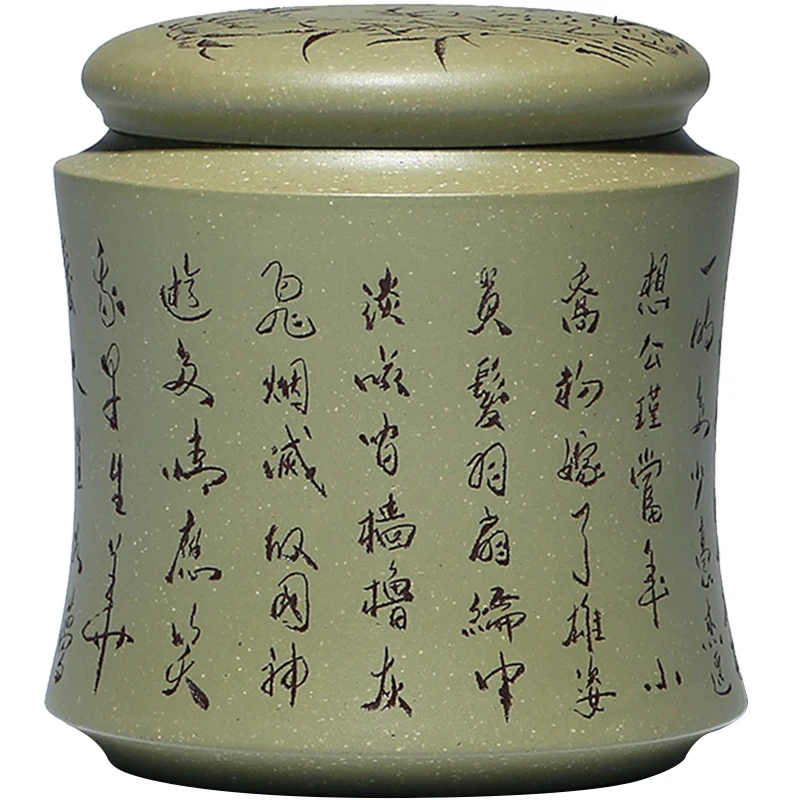 一时多少豪杰遥
想公瑾當年小
喬初嫁了雄姿
英髮羽扇綸巾
談咲间檣櫓灰
飛烟滅故國神
遊多情應笑
我早生華